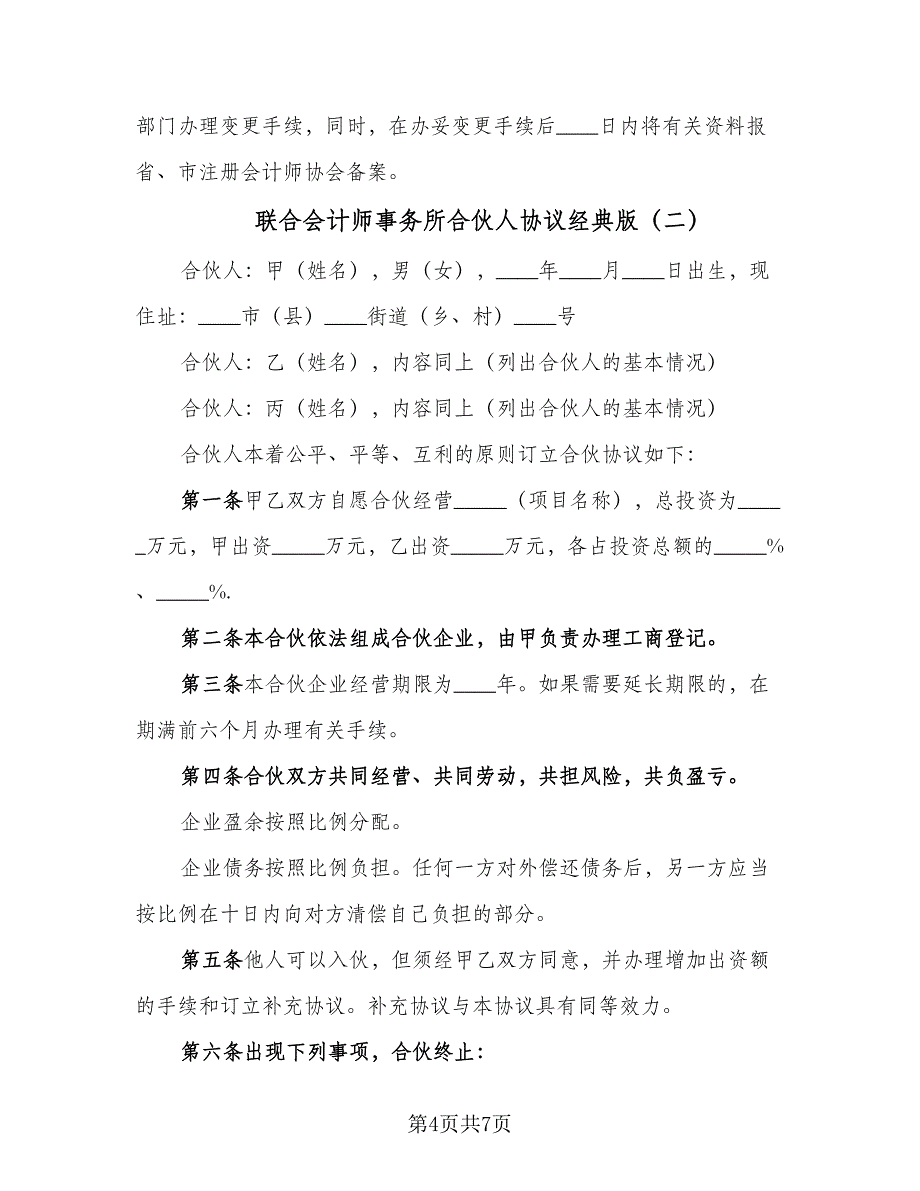 部门办理变更手续，同时，在办妥变更手续后____日内将有关资料报
省、市注册会计师协会备案。
联合会计师事务所合伙人协议经典版（二）
合伙人：甲（姓名），男（女），____年____月____日出生，现
住址：____市（县）____街道（乡、村）____号
合伙人：乙（姓名），内容同上（列出合伙人的基本情况）
合伙人：丙（姓名），内容同上（列出合伙人的基本情况）
合伙人本着公平、平等、互利的原则订立合伙协议如下：
第一条甲乙双方自愿合伙经营_____（项目名称），总投资为____
_万元，甲出资_____万元，乙出资_____万元，各占投资总额的_____%
、_____%.
第二条本合伙依法组成合伙企业，由甲负责办理工商登记。
第三条本合伙企业经营期限为____年。如果需要延长期限的，在
期满前六个月办理有关手续。
第四条合伙双方共同经营、共同劳动，共担风险，共负盈亏。
企业盈余按照比例分配。
企业债务按照比例负担。任何一方对外偿还债务后，另一方应当
按比例在十日内向对方清偿自己负担的部分。
第五条他人可以入伙，但须经甲乙双方同意，并办理增加出资额
的手续和订立补充协议。补充协议与本协议具有同等效力。
第六条出现下列事项，合伙终止：
第4页共7页